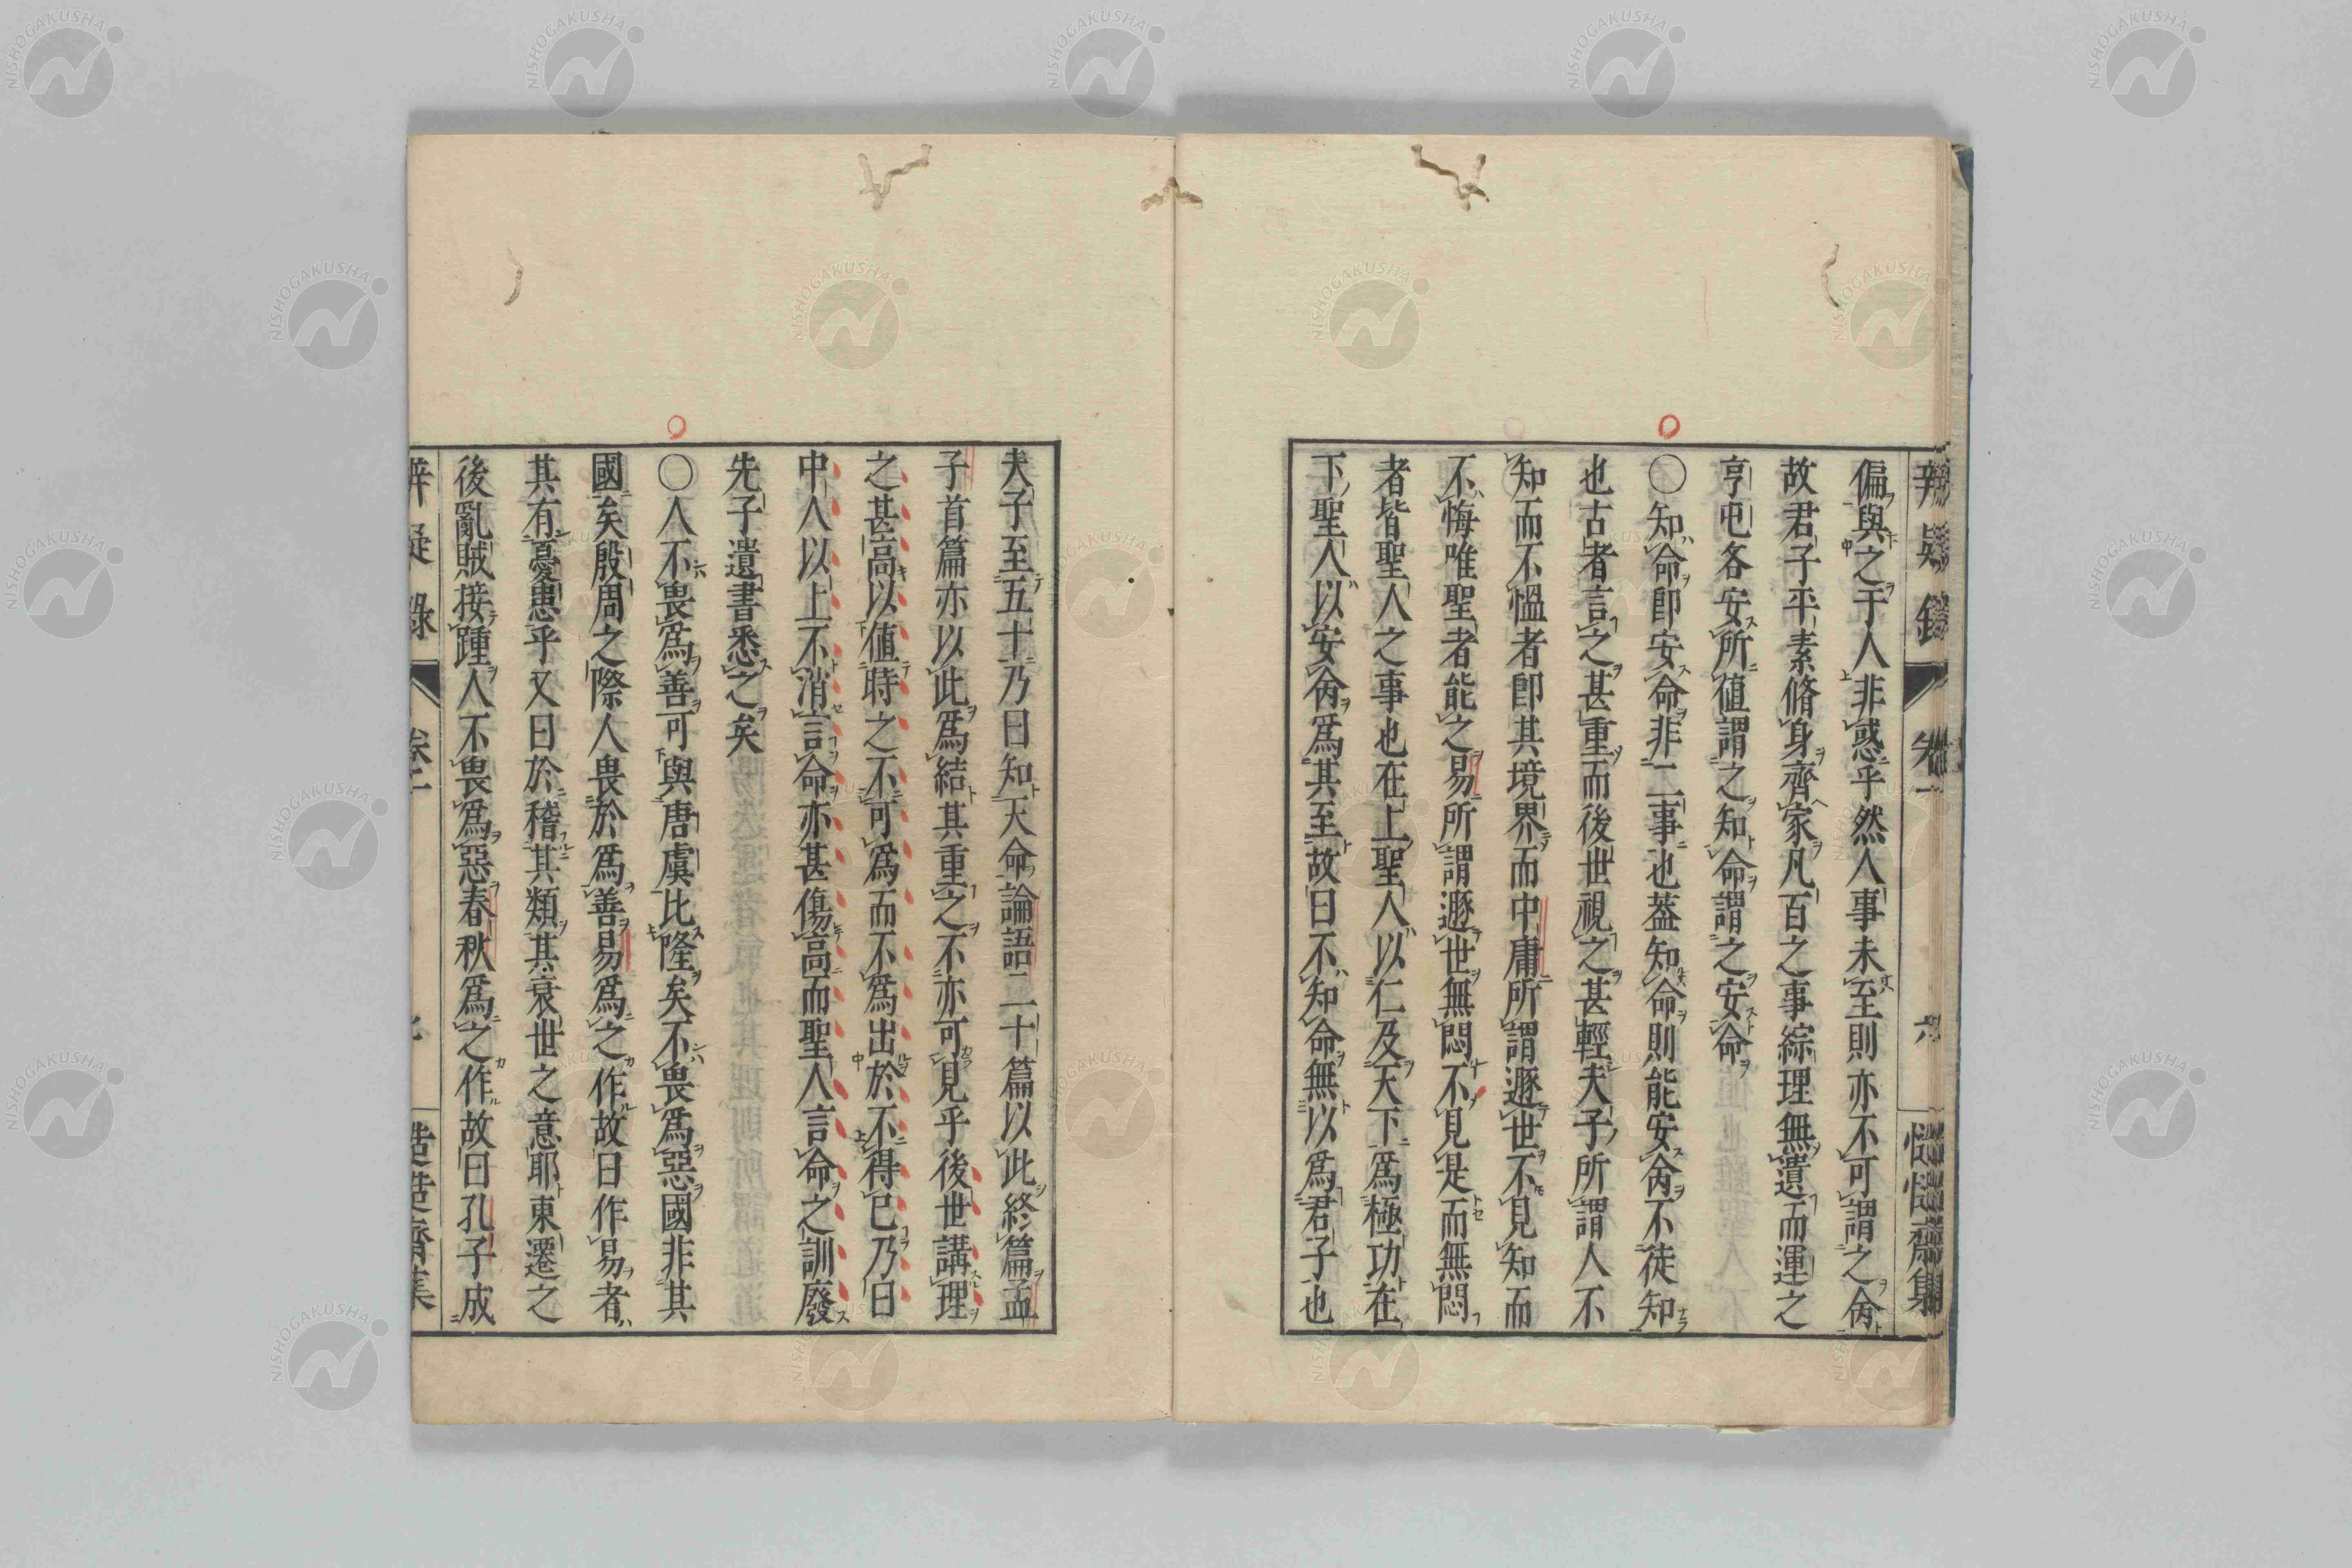 辨疑錄 卷一 六 慥慥齋集
偏與之于人非惑乎然人事未至則亦不可謂之命
故君子平素脩身齊家凡百之事綜理無遺而運之
亨屯各安所値謂之知命謂之安命
〇知命卽安命非二事也蓋知命則能安命不徒知
也古者言之甚重而後世視之甚輕夫子所謂人不
知而不慍者卽其境界而中庸所謂遯世不見知而
不悔唯聖者能之易所謂遯世無悶不見是而無悶
者皆聖人之事也在上聖人以仁及天下爲極功在
下聖人以安命爲其至故曰不知命無以爲君子也
夫子至五十乃曰知天命論語二十篇以此終篇孟
子首篇亦以此爲結其重之不亦可見乎後世講理
之甚高以値時之不可爲而不爲出於不得已乃曰
中人以上不消言命亦甚傷高而聖人言命之訓廢
先子遺書悉之矣
〇人不畏爲善可與唐虞比隆矣不畏爲惡國非其
國矣殷周之際人畏於爲善易爲之作故曰作易者
其有憂患乎又曰於稽其類其衰世之意耶東遷之
後亂賊接踵人不畏爲惡春秋爲之作故曰孔子成
辨疑錄 卷一 慥慥齋集
NISHOGAKUSHA